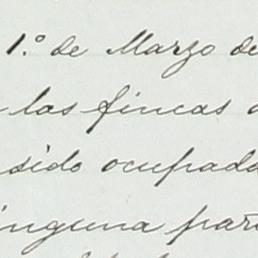 1.º de Marzo de
las fincas
sido ocupada
ninguna par